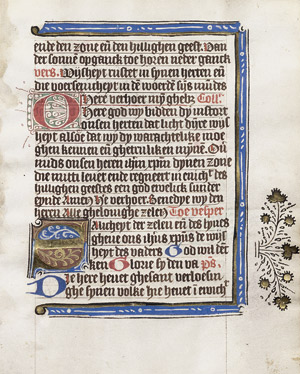 ende den zone en̄ den hillighen geest. Van
der sonne opganck toe horen neder ganck
vers. Wijsheyt rustet in synen herten en̄
die voersenicheyt in de woerde sijs mūdes
O here verhoer mȳ ghebz Coll.
Here god wy bidden dy instort
onsen herten dat licht dijnre wijs
heyt alsoe dat wy dy warachtelike moe
ten kennen en̄ ghetruliken mȳne. Oů
mids onsen heren ihm xpm̄ dynen zone
die mitti leuet ende regneert in enich᷑ des
hillighen geestes een god ewelick sunder
eynde Amen He verhoer. Benedye wy den
heren Alle gheloůighe zelen Toe vesper
Lucheyt der zelen en̄ des lynes
gheue ons ihūs xp̄us de wijs
heyt des vaders God wil der
ken Glorie sy den va ps.
Die here heuet ghesant verloesin
ghe synen volke hie heuet i ewich᷑